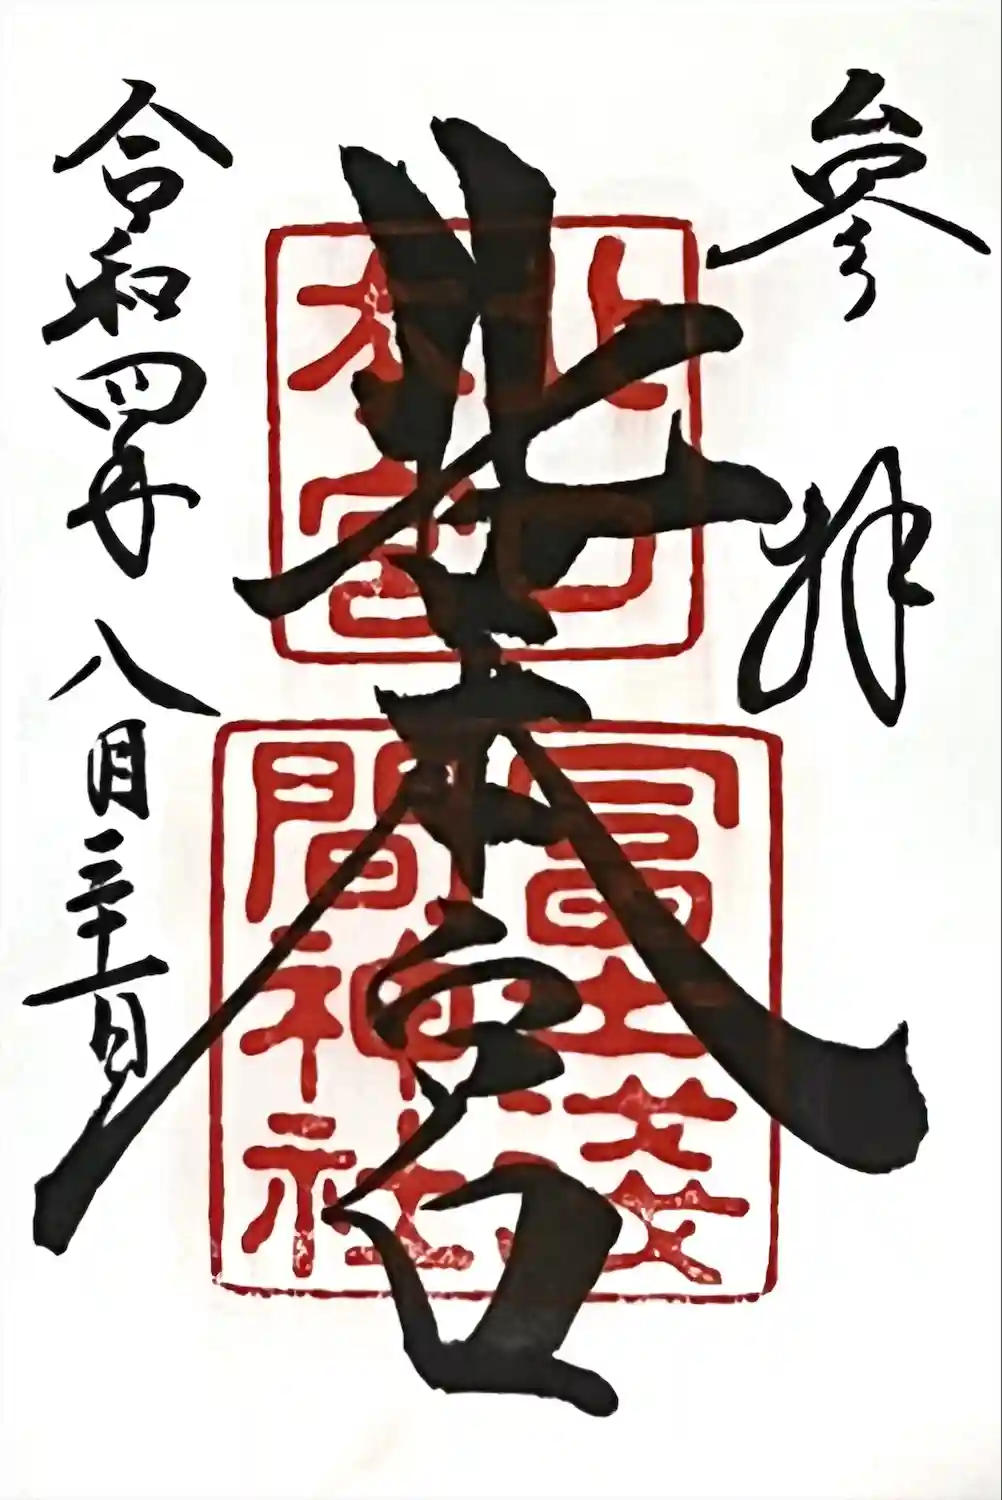 参拝
北口本宮
北口
本宮
冨士淺
間神社
令和四年八月三十一日